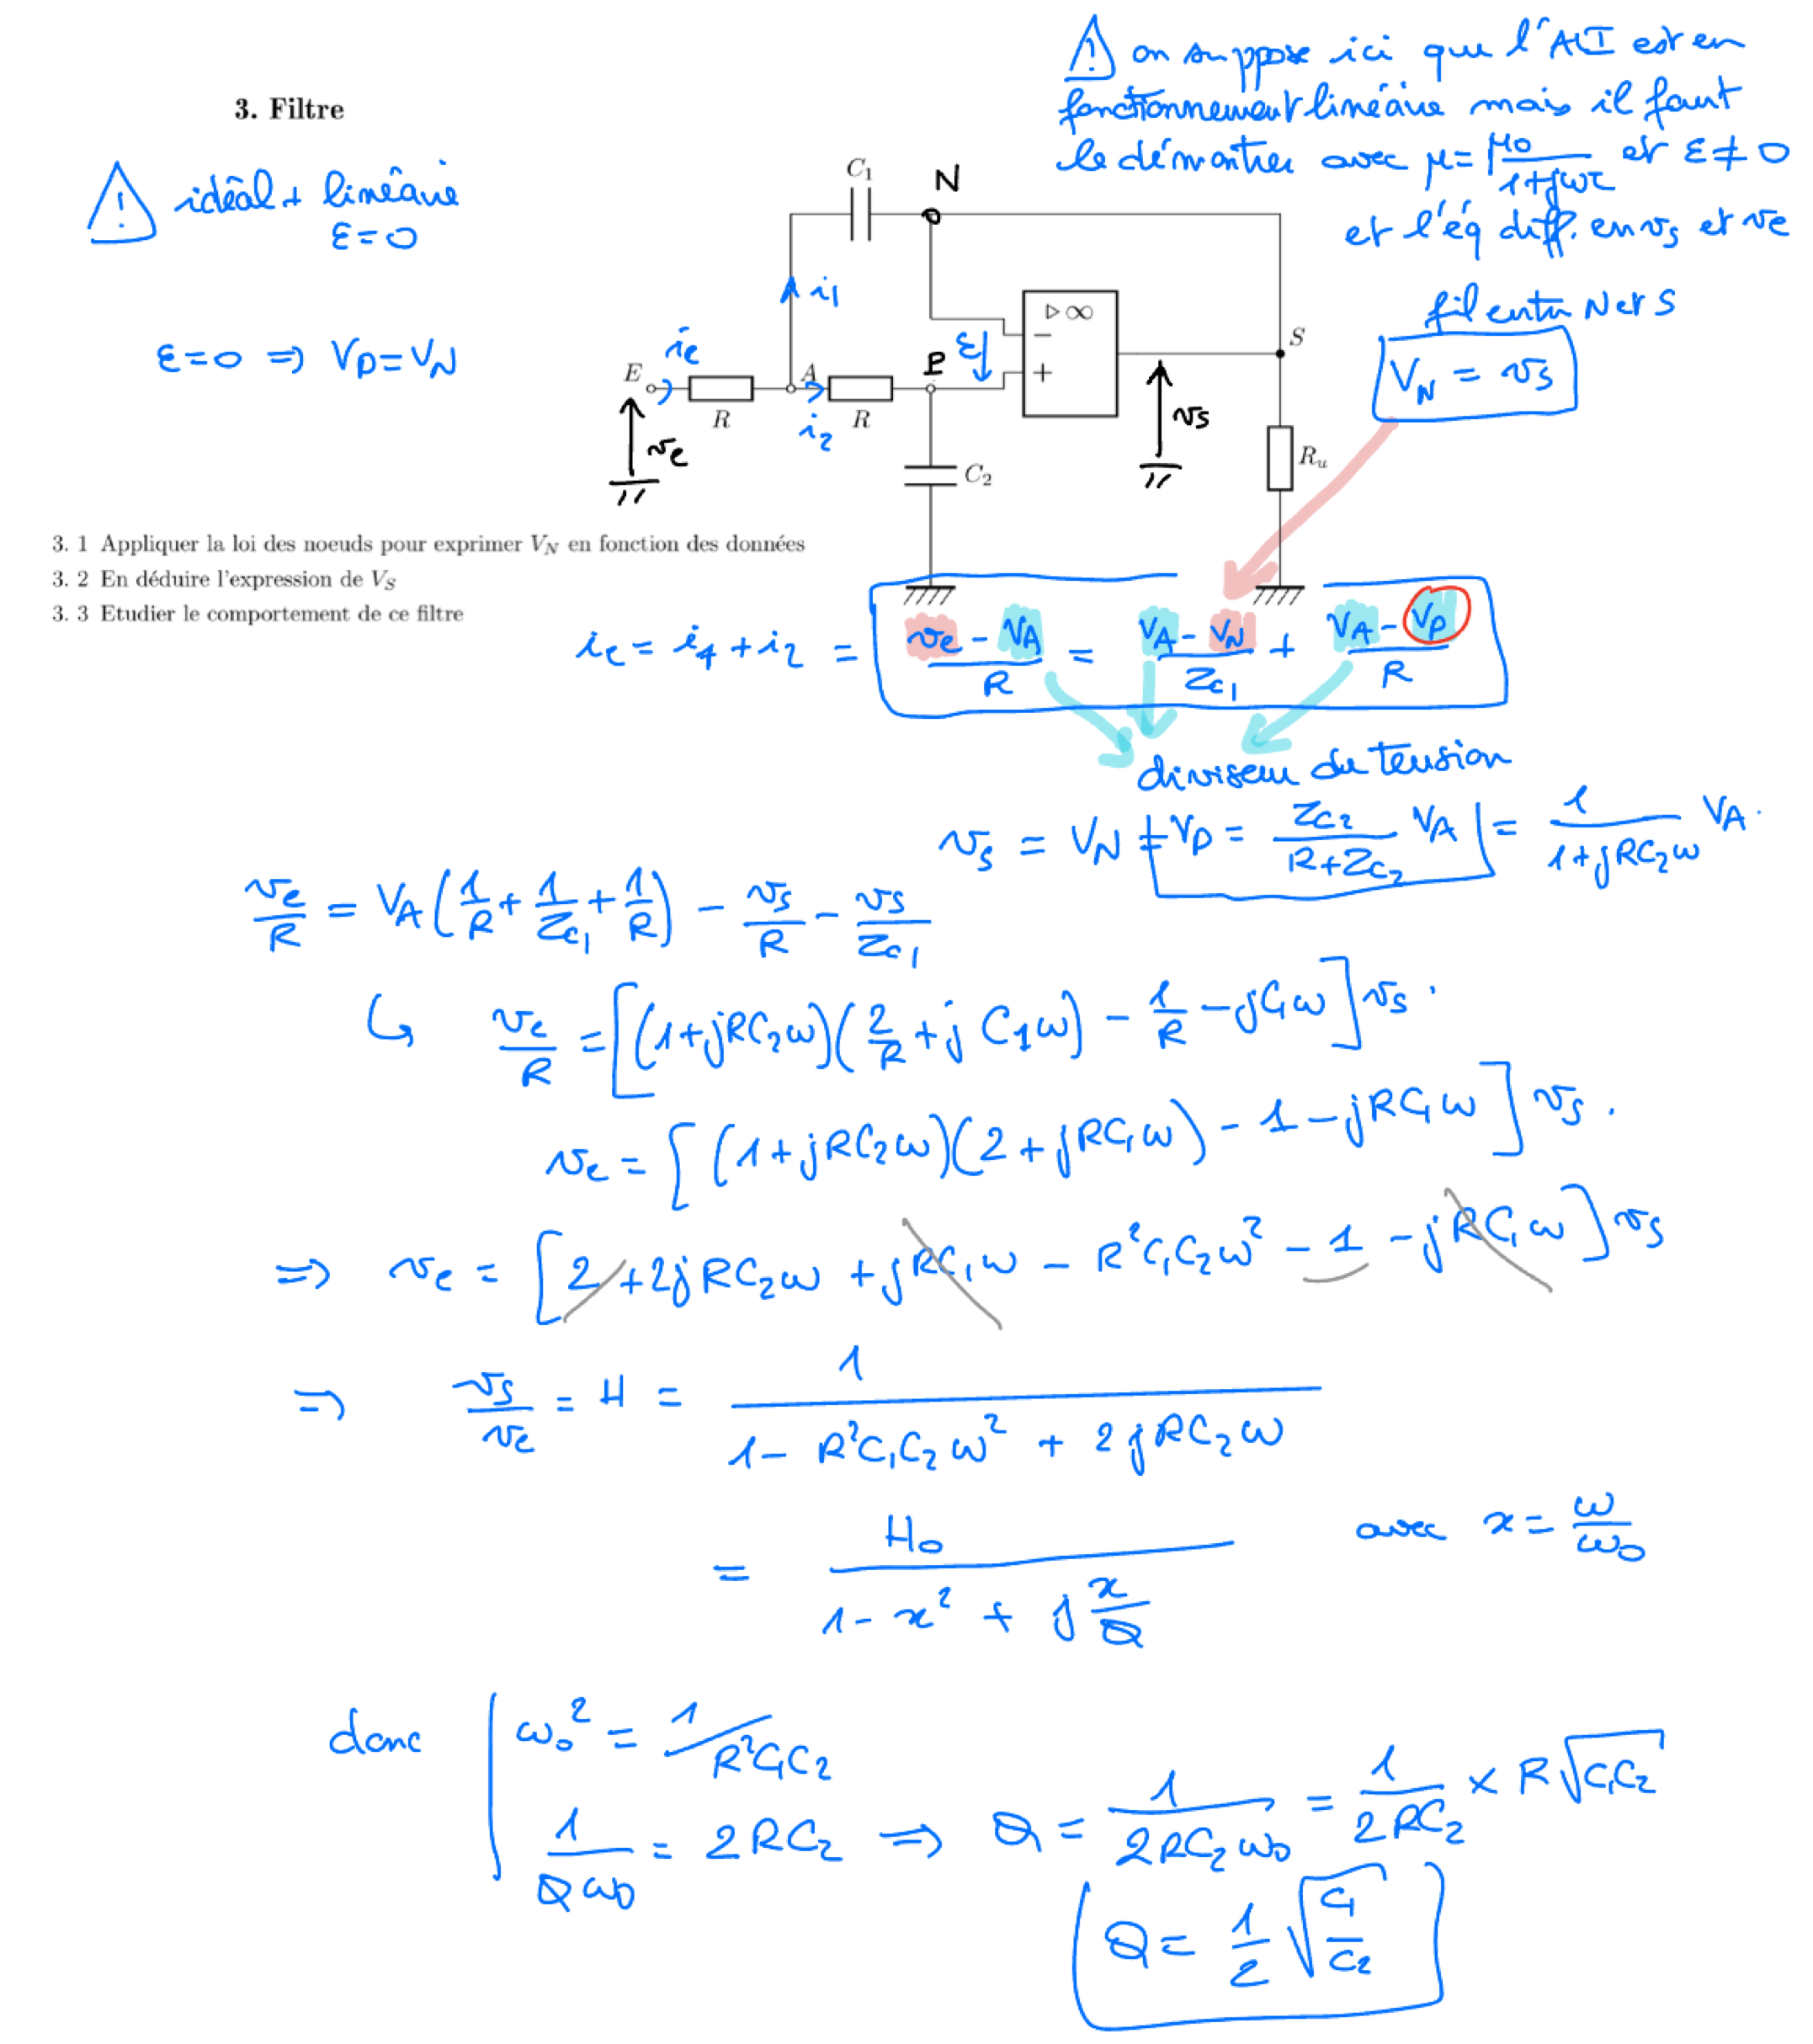 ⚠ on suppose ici que l'ALI est en
fonctionnement linéaire mais il faut
le démontrer avec μ = μ0/(1+jωτ) et ε ≠ 0
et l'éq diff. en vs et ve
3. Filtre
⚠ idéal + linéaire
ε=0
ε=0 ⇒ VP = VN
C1
N
i1
▷∞
−
+
ε
P
ie
E
A
R
i2
R
ve
C2
vs
S
Ru
fil entre N et S
VN = vs
3. 1 Appliquer la loi des noeuds pour exprimer VN en fonction des données
3. 2 En déduire l'expression de VS
3. 3 Etudier le comportement de ce filtre
ie = i1 + i2 = (ve − VA)/R = (VA − VN)/ZC1 + (VA − VP)/R
diviseur de tension
vs = VN = VP = ZC2/(R+ZC2) VA = 1/(1+jRC2ω) VA.
ve/R = VA(1/R + 1/ZC1 + 1/R) − vs/R − vs/ZC1
↳ ve/R = [(1+jRC2ω)(2/R + jC1ω) − 1/R − jC1ω] vs.
ve = [(1+jRC2ω)(2+jRC1ω) − 1 − jRC1ω] vs.
⇒ ve = [2 + 2jRC2ω + jRC1ω − R²C1C2ω² − 1 − jRC1ω] vs
⇒ vs/ve = H = 1/(1 − R²C1C2ω² + 2jRC2ω)
= H0/(1 − x² + j x/Q) avec x = ω/ω0
donc ω0² = 1/R²C1C2
1/(Qω0) = 2RC2 ⇒ Q = 1/(2RC2ω0) = 1/(2RC2) × R√(C1C2)
Q = 1/2 √(C1/C2)